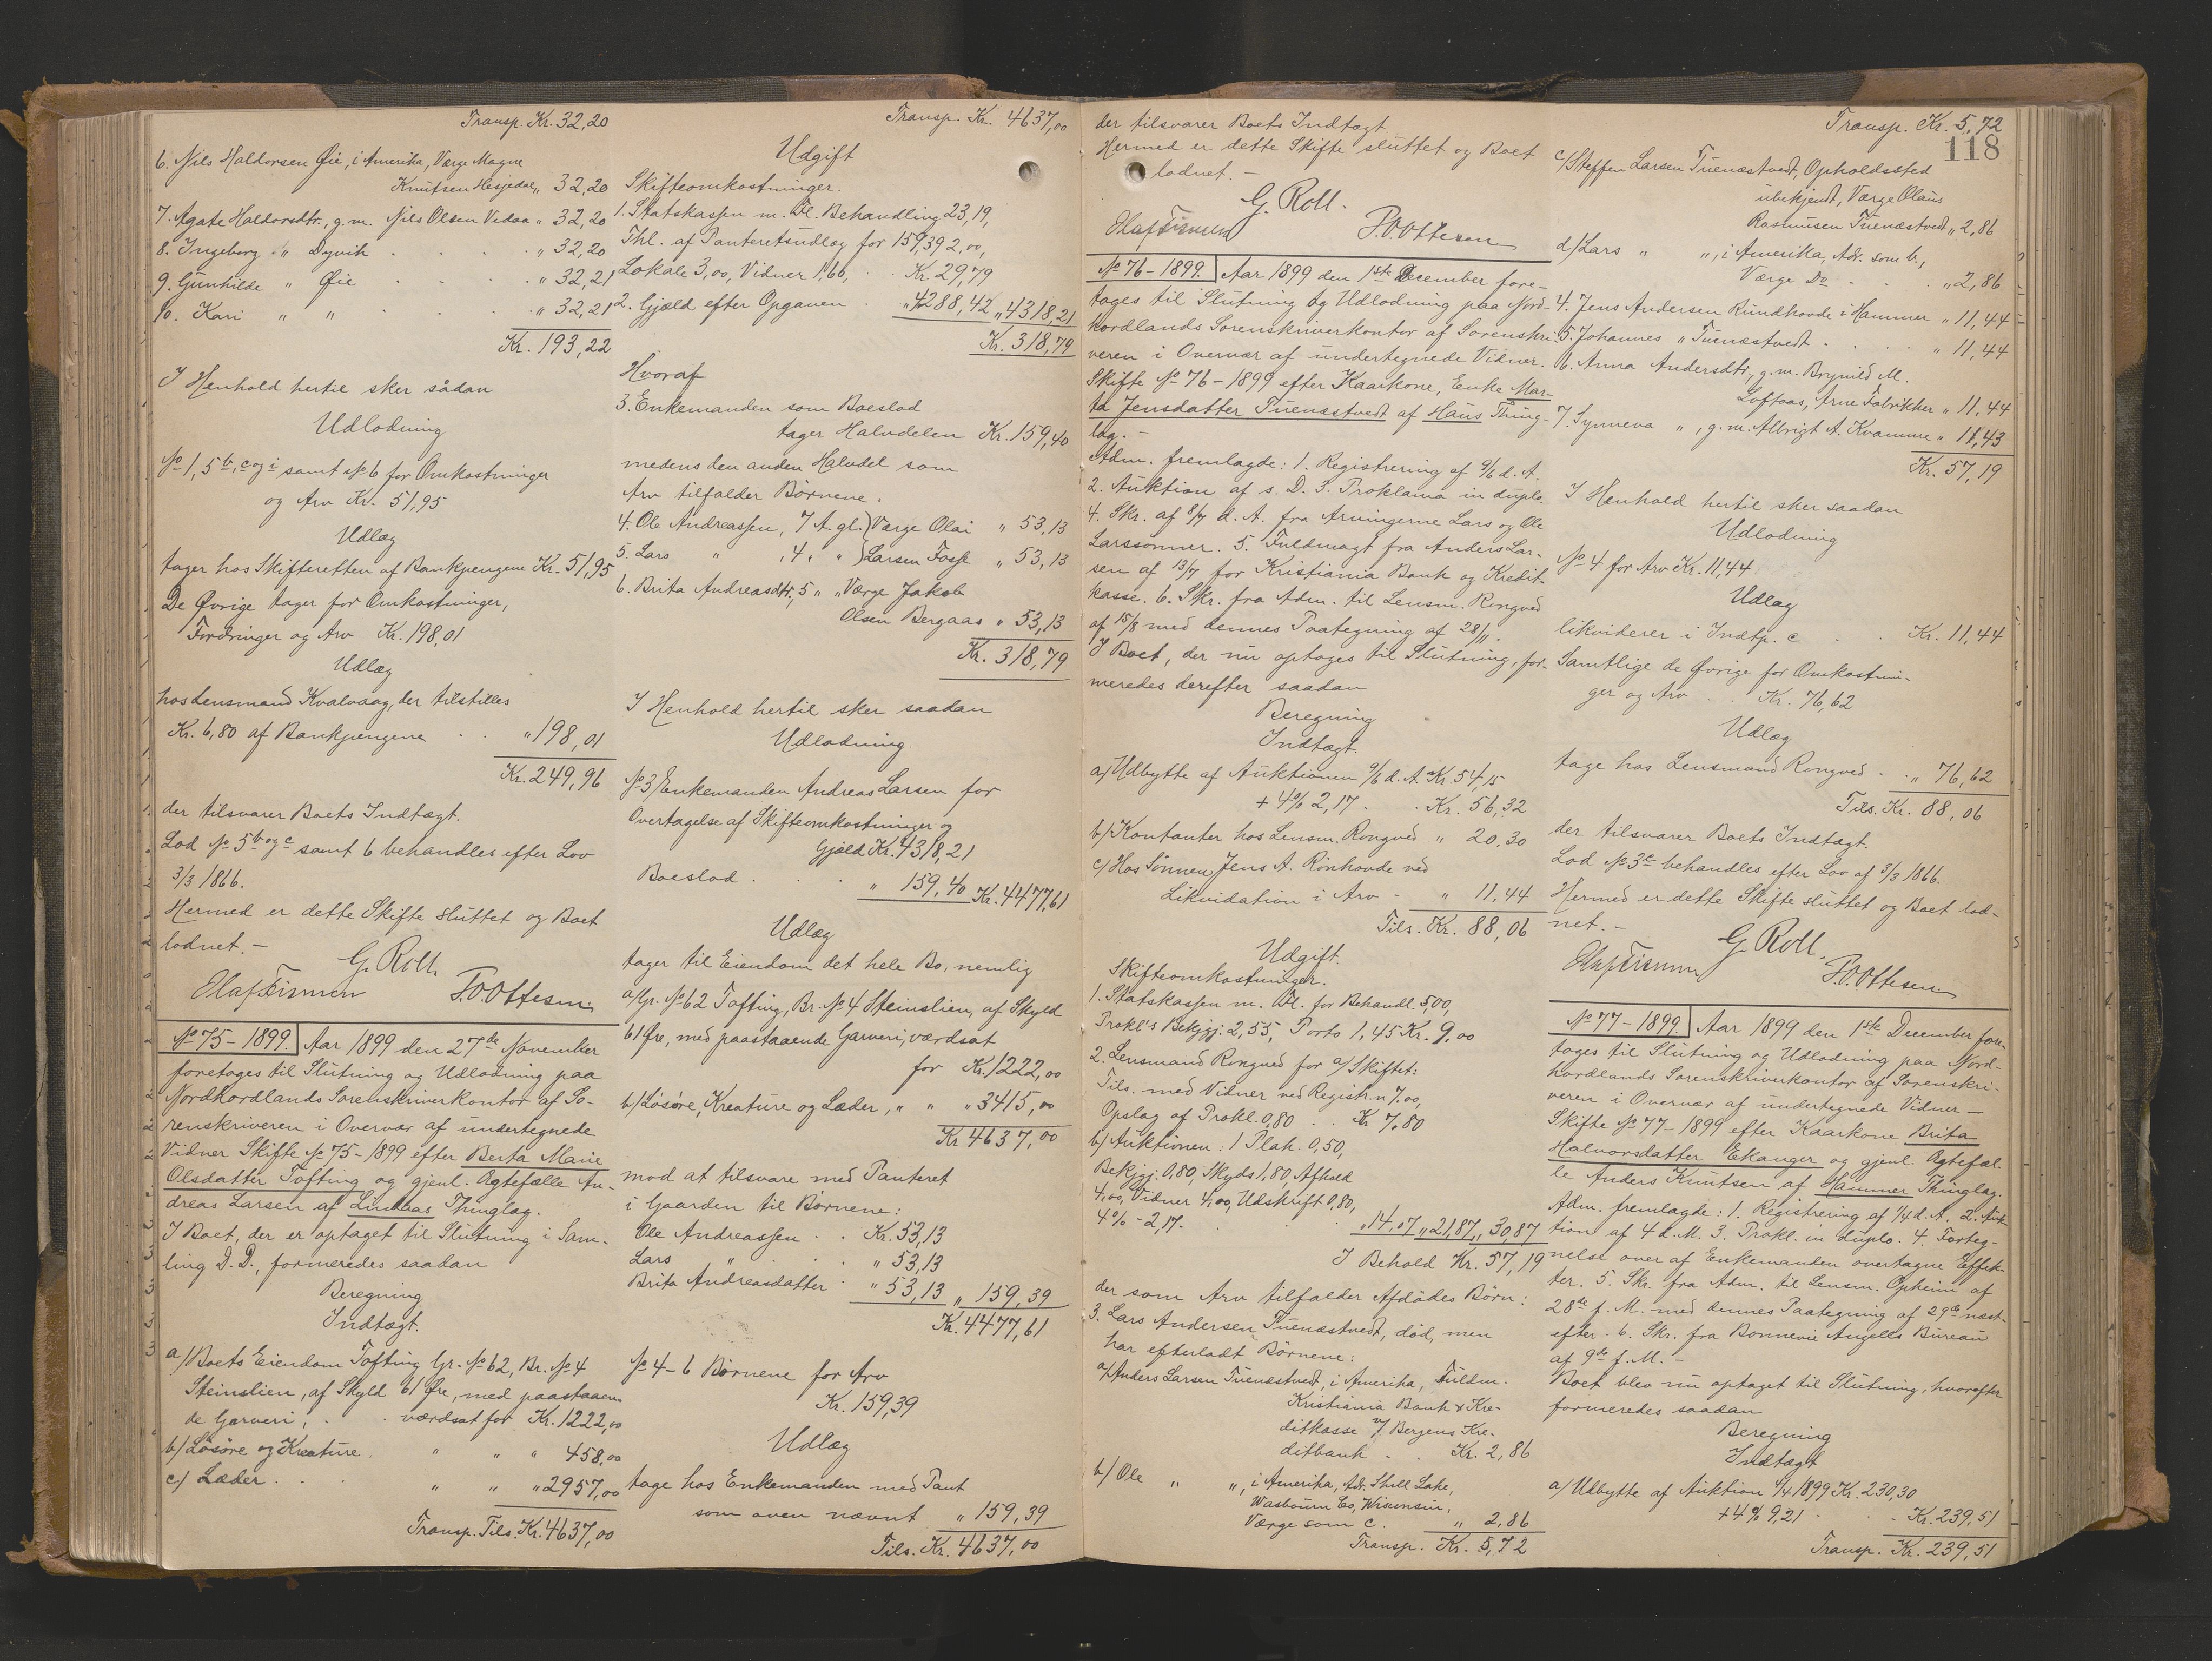 Transp. Kr. 32,20
6. Nils Haldorsen Øie, i Amerika, Værge Magne
Knutsen Hesjedal „ 32,20
7. Agate Haldorsdtr., g. m. Nils Olsen Vidaa „ 32,20
8. Ingeborg „ Dyvik . . . „ 32,20
9. Gunhilde „ Øie . . . „ 32,21
10. Kari „ „ . . . „ 32,21
Kr. 193,22
I Henhold hertil sker sådan
Udlodning
No 1, 5 b, c og i samt No 6 for Omkostninger
og Arv Kr. 51,95
Udlæg
tager hos Skifteretten af Bankpengene Kr. 51,95
De Øvrige tager for Omkostninger,
Fordringer og Arv Kr. 198,01
Udlæg
hos Lensmand Kvalvaag, der tilstilles
Kr. 6,80 af Bankpengene . . „ 198,01
Kr. 249,96
der tilsvarer Boets Indtægt.
Lod No 5 b og c samt 6 behandles efter Lov
3/3 1866.
Hermed er dette Skifte sluttet og Boet
lodnet. —
G. Roll.
P. O. Ottesen
No 75 - 1899. Aar 1899 den 27de November
foretoges til Slutning og Udlodning paa
Nordhordlands Sorenskriverkontor af So-
renskriveren i Overvær af undertegnede
Vidner Skifte No 75 - 1899 efter Berta Marie
Olsdatter Tofting og gjenl. Ægtefælle An-
dreas Larsen af Lindaas Thinglag.
I Boet, der er optaget til Slutning i Sam-
ling D. D., formeredes saadan
Beregning
Indtægt.
a/ Boets Eiendom Tofting Gr. No 62, Br. No 4
Steinslien, af Skyld 61 Øre, med paastaaen-
de Garveri, . . værdsat for Kr. 1222,00
b/ Løsøre og Kreature. „ „ „ 458,00
c/ Læder . . . „ „ „ 2957,00
Transp. Tils. Kr. 4637,00
Transp. Kr. 4637,00
Udgift
Skifteomkostninger.
1. Statskassen m. Fl. Behandling 23,19,
Thl. af Panteretsudlæg for 159,39 2,00,
Lokale 3,00, Vidner 1,60, . Kr. 29,79
2. Gjæld efter Opgaven . „ 4288,42 „ 4318,21
Kr. 318,79
Hvoraf
3. Enkemanden som Boeslod
tager Halvdelen Kr. 159,40
medens den anden Halvdel som
Arv tilfalder Børnene:
4. Ole Andreassen, 7 A. gl. ) Værge Olai „ 53,13
5. Lars „ , 4 „ „ ) Larsen Fosse „ 53,13
6. Brita Andreasdtr, 5 „ „ Værge Jakob
Olsen Bergaas „ 53,13
Kr. 318,79
I Henhold hertil sker saadan
Udlodning
No 3/ Enkemanden Andreas Larsen for
Overtagelse af Skifteomkostninger og
Gjæld Kr. 4318,21
Boeslod . . . „ 159,40 Kr. 4477,61
Udlæg
tager til Eiendom det hele Bo, nemlig
a/ Gr. No 62 Tofting, Br. No 4 Steinslien, af Skyld
61 Øre, med paastaaende Garveri, værdsat
for Kr. 1222,00
b/ Løsøre, Kreature og Læder, „ „ „ 3415,00
Kr. 4637,00
mod at tilsvare med Panteret
i Gaarden til Børnene:
Ole Andreassen . . Kr. 53,13
Lars „ . . „ 53,13
Brita Andreasdatter . „ 53,13 „ 159,39
Kr. 4477,61
No 4 - 6 Børnene for Arv
Kr. 159,39
Udlæg
tage hos Enkemanden med Pant
som oven nævnt „ 159,39
Tils. Kr. 4637,00
der tilsvarer Boets Indtægt.
Hermed er dette Skifte sluttet og Boet
lodnet. —
G. Roll.
P. O. Ottesen
No 76 - 1899. Aar 1899 den 1ste December fore-
toges til Slutning og Udlodning paa Nord-
hordlands Sorenskriverkontor af Sorenskri-
veren i Overvær af undertegnede Vidner.
Skifte No 76 - 1899 efter Kaarkone, Enke Mar-
ta Jensdatter Tuenæstvedt af Haus Thing-
lag. —
Adm. fremlagde: 1. Registrering af 9/6 d. A.
2. Auktion af s. D. 3. Proklama in duplo.
4. Skr. af 8/7 d. A. fra Arvingerne Lars og Ole
Larssønner. 5. Fuldmagt fra Anders Lar-
sen af 13/7 for Kristiania Bank og Kredit-
kasse. 6. Skr. fra Adm. til Lensm. Rongved
af 15/8 med dennes Paategning af 28/11.
I Boet, der nu optoges til Slutning, for-
meredes derefter saadan
Beregning
Indtægt.
a/ Udbytte af Auktionen 9/6 d. A. Kr. 54,15
+ 4% 2,17 . . Kr. 56,32
b/ Kontanter hos Lensm. Rongved „ 20,30
c/ Hos Sønnen Jens A. Rønhovde ved
Likvidation i Arv . „ 11,44
Tils. Kr. 88,06
Udgift.
Skifteomkostninger.
1. Statskassen m. Fl. for Behandl. 5,00,
Prokl's Bekjgj. 2,55, Porto 1,45 Kr. 9,00
2. Lensmand Rongved for a/ Skiftet:
Tils. med Vidner ved Registr. n 7,00,
Opslag af Prokl. 0,80 . . Kr 7,80
b/ Auktionen: 1 Plak. 0,50,
Bekjgj. 0,80, Skyds 1,80, Afhold
4,00, Vidner 4,00, Udskrift 0,80,
4% - 2,17. „ 14,07 „ 21,87 „ 30,87
I Behold Kr. 57,19
der som Arv tilfalder Afdødes Børn:
3. Lars Andersen Tuenæstvedt, død, men
har efterladt Børnene:
a/ Anders Larsen Tuenæstvedt, i Amerika, Fuldm.
Kristiania Bank & Kre-
ditkasse v/ Bergens Kre-
ditbank . . Kr. 2,86
b/ Ole „ „, i Amerika, Adr. Shell Lake,
Wasbourn Co, Wisconsin,
Værge som c. . „ 2,86
Transp. Kr. 5,72
Transp. Kr. 5,72
118
c/ Steffen Larsen Tuenæstvedt, Opholdssted
ubekjendt, Værge Olaus
Rasmusen Tuenæstvedt „ 2,86
d/ Lars „ „, i Amerika, Adr. som b.,
Værge Do . . . „ 2,86
4. Jens Andersen Rundhovde i Hammer „ 11,44
5. Johannes „ Tuenæstvedt . . . „ 11,44
6. Anna Andersdtr, g. m. Brynild M.
Loftaas, Arne Fabrikker „ 11,44
7. Synneva „, g. m. Albrigt A. Kvamme „ 11,43
Kr. 57,19
I Henhold hertil sker saadan
Udlodning
No 4 for Arv Kr. 11,44
Udlæg
likviderer i Indtp. c . . Kr. 11,44
Samtlige de Øvrige for Omkostnin-
ger og Arv . . Kr. 76,62
Udlæg
tage hos Lensmand Rongved . . „ 76,62
Tils. Kr. 88,06
der tilsvarer Boets Indtægt.
Lod No 3 c behandles efter Lov af 3/3 1866.
Hermed er dette Skifte sluttet og Boet lod-
net. —
G. Roll.
P. O. Ottesen
No 77 - 1899. Aar 1899 den 1ste December fore-
toges til Slutning og Udlodning paa Nord-
hordlands Sorenskriverkontor af Sorenskri-
veren i Overvær af undertegnede Vidner —
Skifte No 77 - 1899 efter Kaarkone Brita
Halvorsdatter Ekanger og gjenl. Ægtefæl-
le Anders Knutsen af Hammer Thinglag.
Adm. fremlagde: 1. Registrering af 1/4 d. A. 2. Auk-
tion af 4 d. M. 3. Prokl. in duplo. 4. Forteg-
nelse over af Enkemanden overtagne Effek-
ter. 5. Skr. fra Adm. til Lensm. Opheim af
28de f. M. med dennes Paategning af 29de næst-
efter. 6. Skr. fra Bonnevie Angells Bureau
af 9de f. M. —
Boet blev nu optaget til Slutning, hvorefter
formeredes saadan
Beregning
Indtægt
a/ Udbytte af Auktion 4/4 1899 Kr. 230,30
+ 4% 9,21 . . Kr. 239,51
Transp. Kr. 239,51